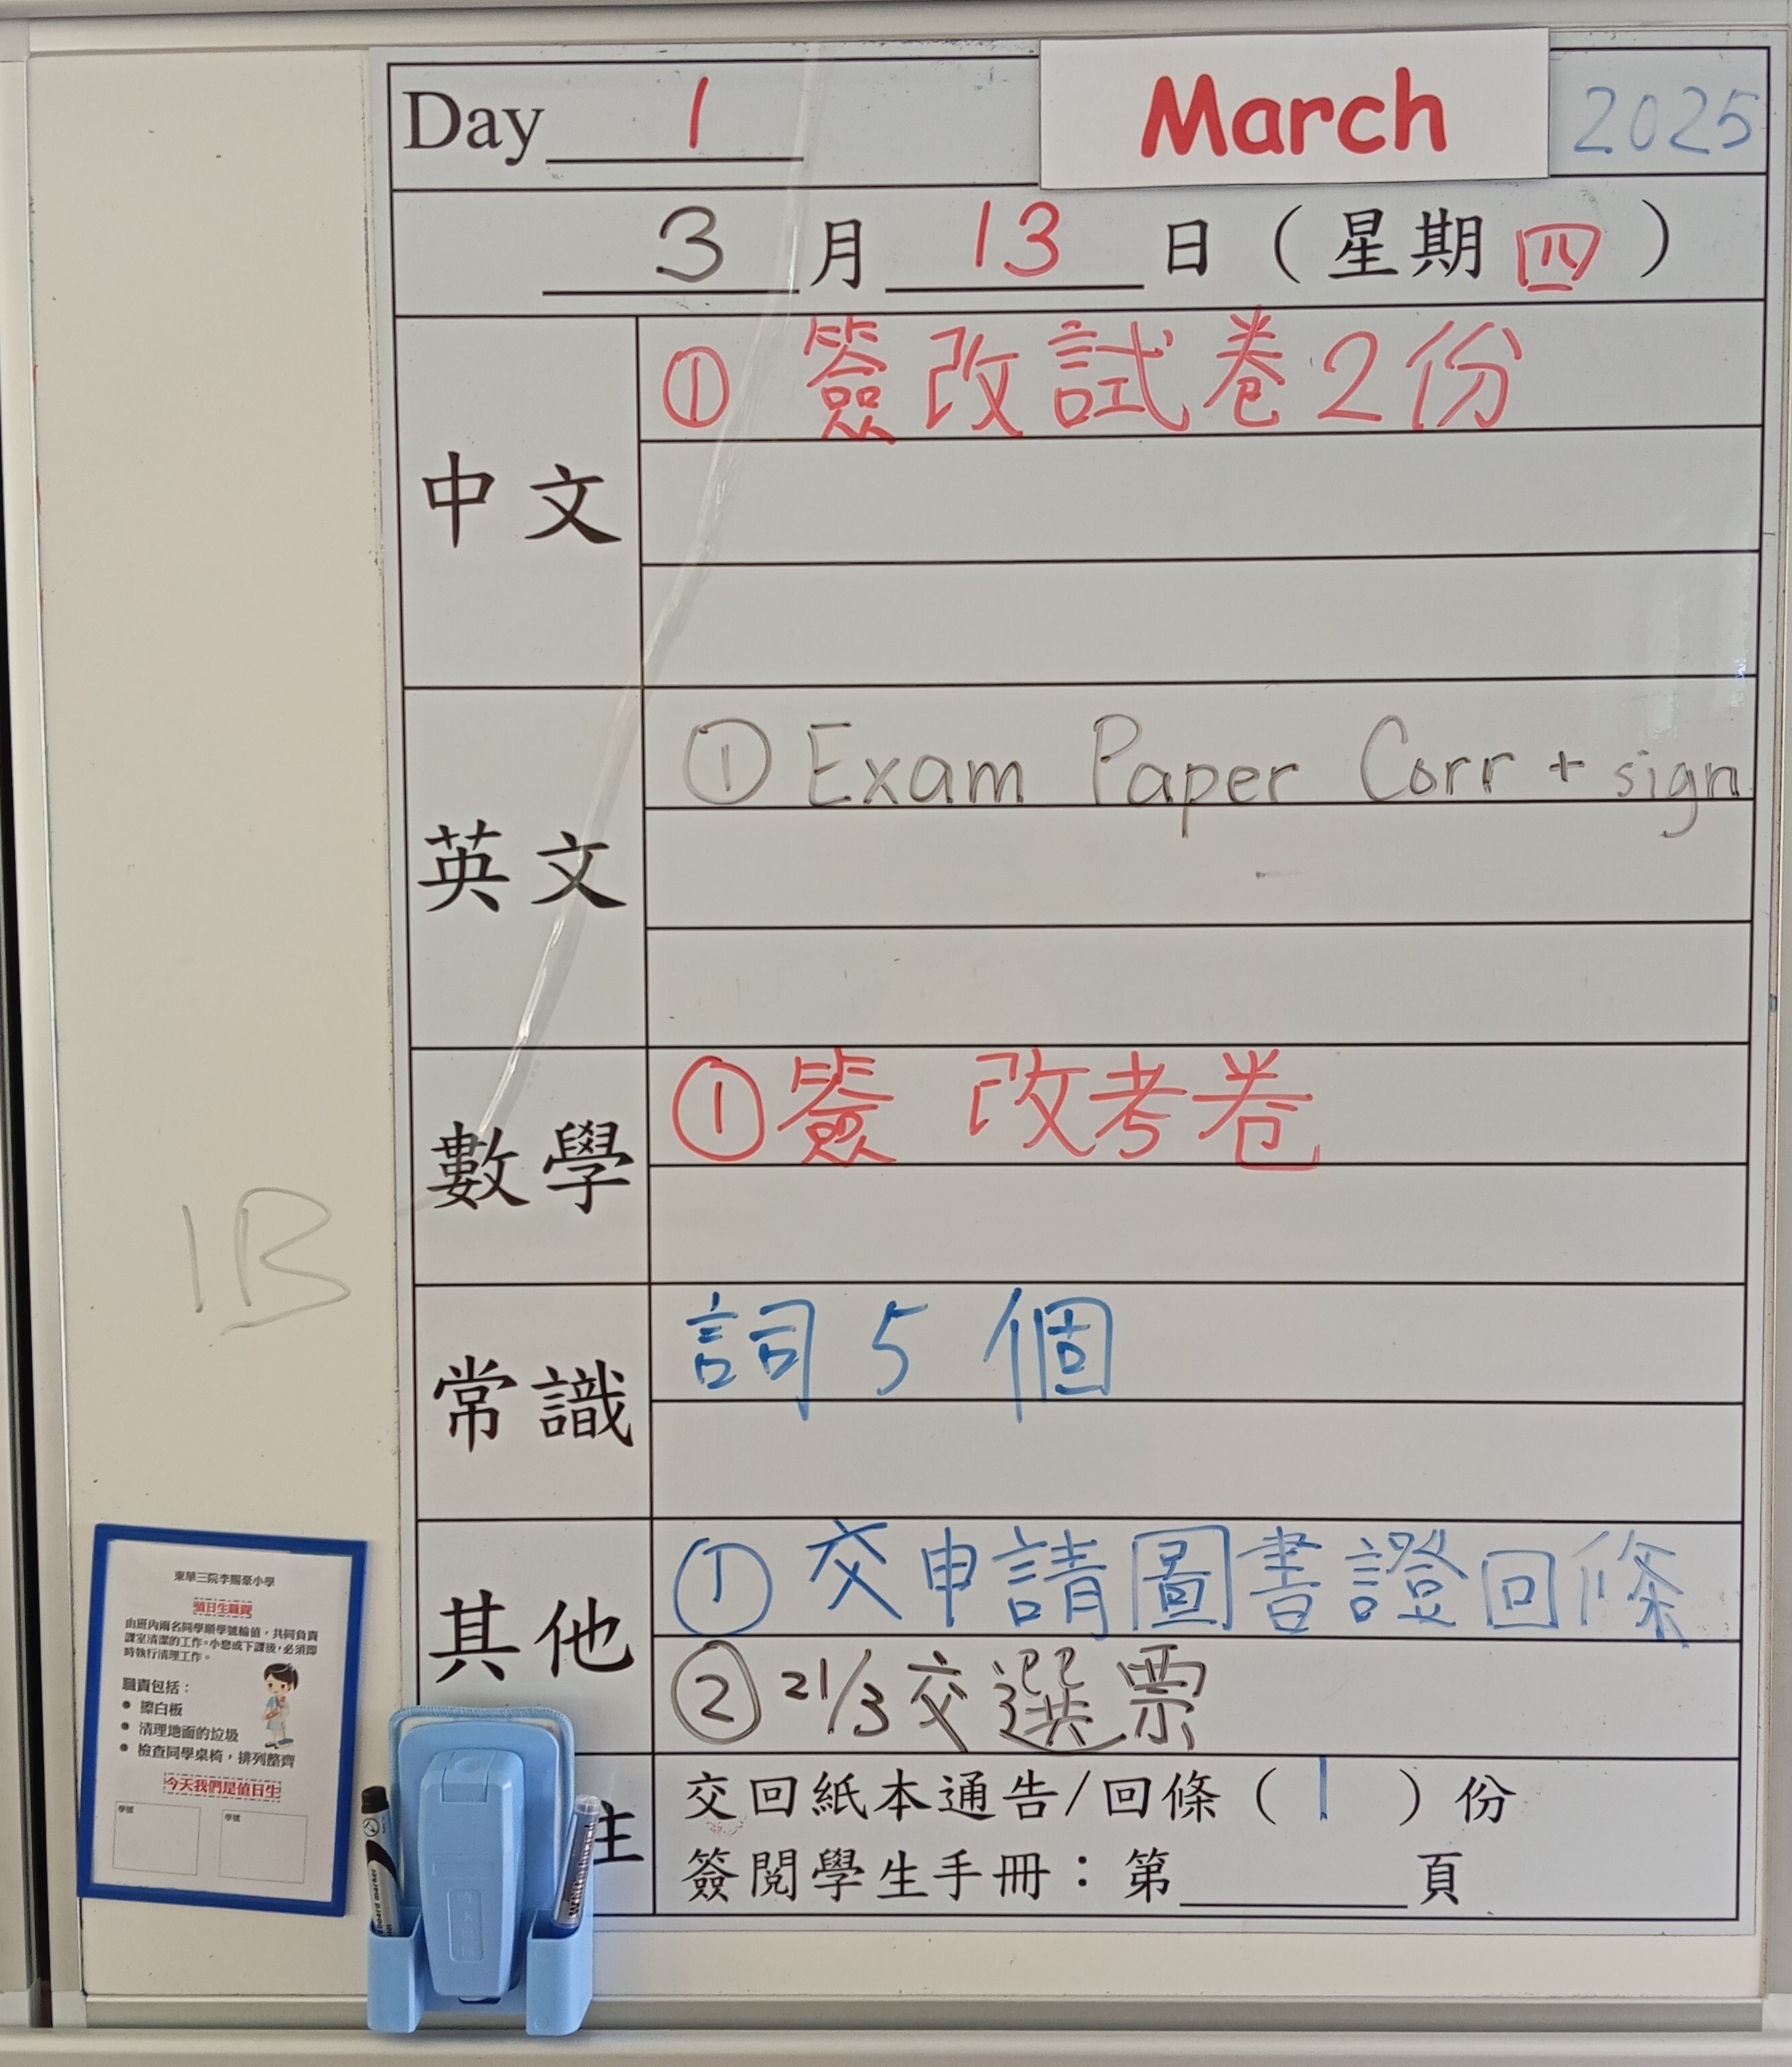 Day 1 March 2025
3 月 13 日 ( 星期 四 )
中文
① 簽改試卷2份
英文
① Exam Paper Corr + sign
數學
① 簽 改考卷
常識
詞 5 個
其他
① 交申請圖書證回條
② 21/3 交選票
主
交回紙本通告/回條 ( 1 ) 份
簽閱學生手冊：第 頁
1B
東華三院李賜豪小學
值日生職責
由班內兩名同學順學號輪值，共同負責
課室清潔的工作。小息或下課後，必須即
時執行清理工作。
職責包括：
● 擦白板
● 清理地面的垃圾
● 檢查同學桌椅，排列整齊
今天我們是值日生
學號 學號
board marker